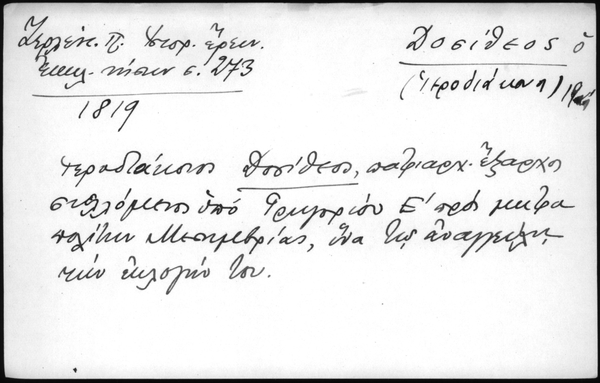 Ζερλέντ. Π. Ἱστορ. Ἔρευν.
Ἐκκλ. νήσων σ. 273
1819
Δοσίθεος ὁ
(ἱεροδιάκονος)
ἱεροδιάκονος Δοσίθεος, πατριαρχ. Ἔξαρχος
στελλόμενος ὑπό Γρηγορίου Ε' πρός μητρο
πολίτην Μεσημβρίας, ἵνα τῷ ἀναγγείλῃ
τήν ἐκλογήν του.